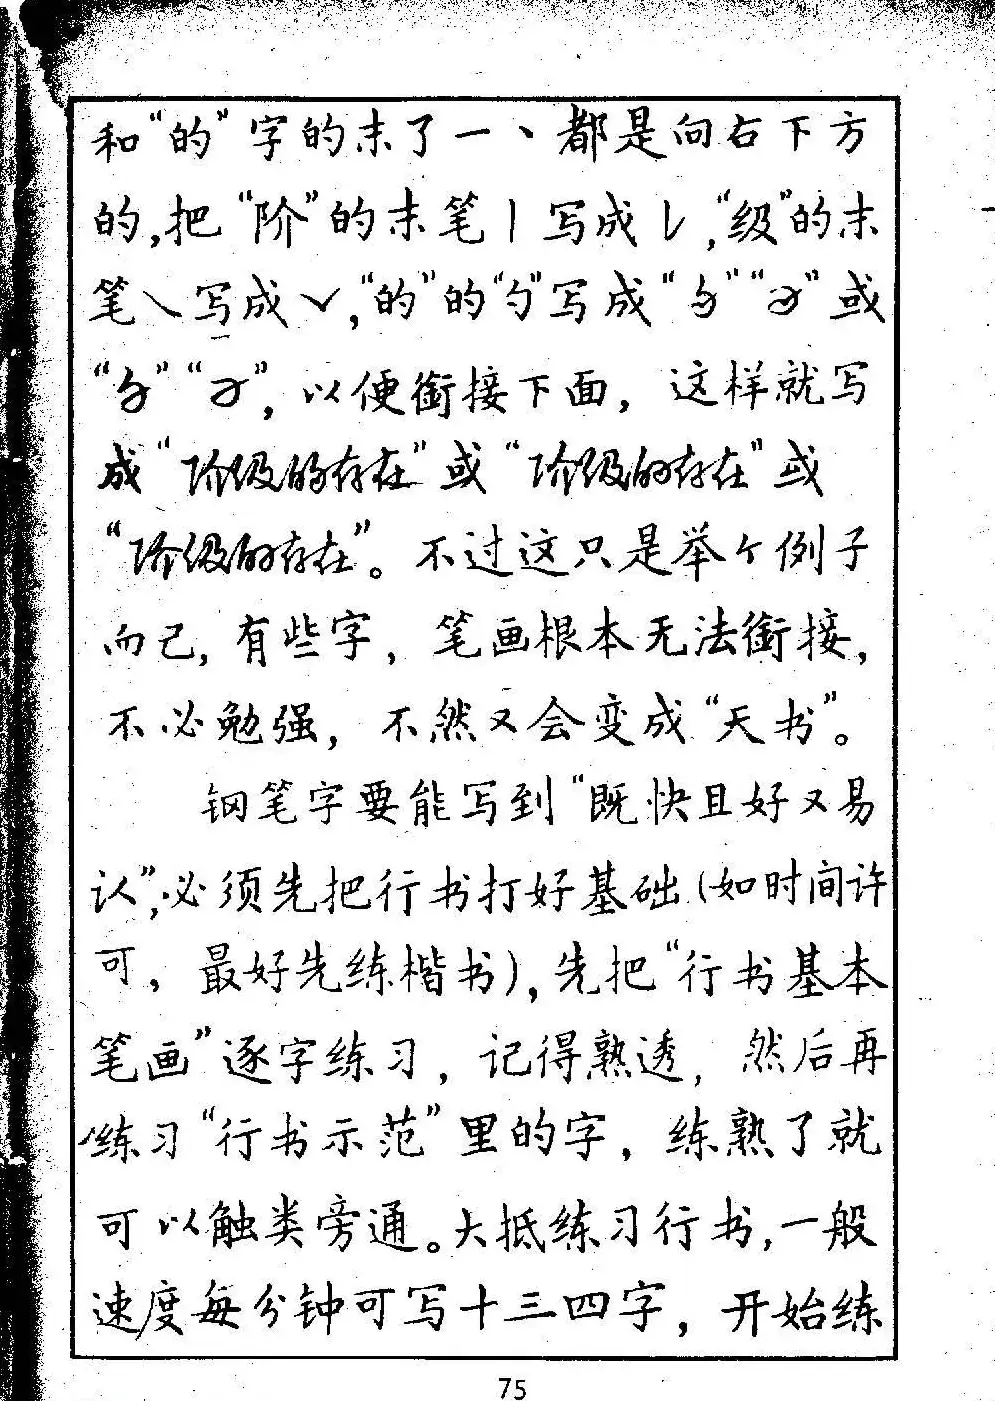 和“的”字的末了一丶都是向右下方
的,把“阶”的末笔丨写成㇙,“级”的末
笔㇏写成✓,“的”的“勺”写成“ ” “ ”或
“ ” “ ”,以便衔接下面,这样就写
成“阶级的存在”或“阶级的存在”或
“阶级的存在”。不过这只是举个例子
而已,有些字,笔画根本无法衔接,
不必勉强,不然又会变成“天书”。
钢笔字要能写到“既快且好又易
认”,必须先把行书打好基础(如时间许
可,最好先练楷书),先把“行书基本
笔画”逐字练习,记得熟透,然后再
练习“行书示范”里的字,练熟了就
可以触类旁通。大抵练习行书,一般
速度每分钟可写十三四字,开始练
75